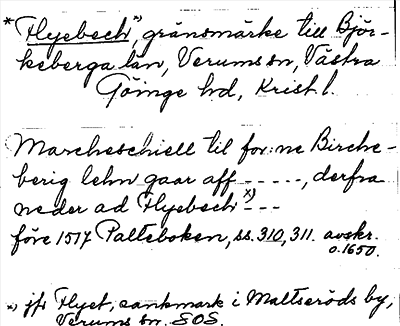 * "Flyebech", gränsmärke till Björ-
keberga län, Verums sn, Västra
Göinge hd, Krist l.
Marcheschiell til for:ne Birche-
berig lehn gaar aff - - - - -, derfra
neder ad Flyebech x) - - -
före 1517 Palteboken, ss. 310, 311. avskr.
o. 1650.
x) jfr Flyet, sankmark i Maltseröds by,
Verums sn. SOS.